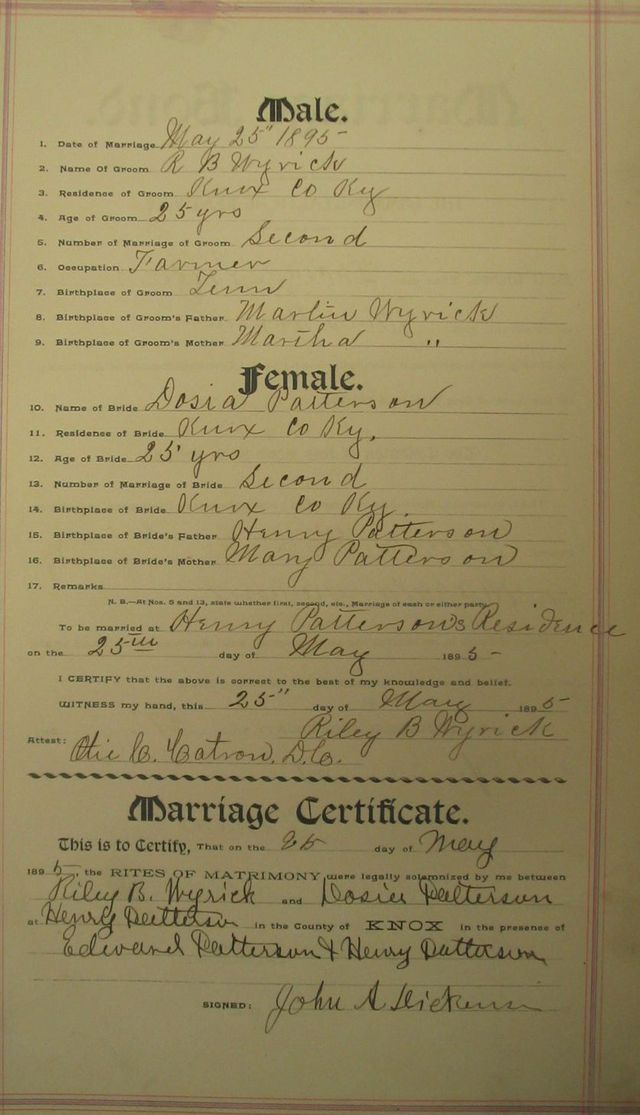 Male.
1. Date of Marriage May 25" 1895
2. Name Of Groom R B Wyrick
3. Residence of Groom Knox Co Ky
4. Age of Groom 25 yrs
5. Number of Marriage of Groom Second
6. Occupation Farmer
7. Birthplace of Groom Tenn
8. Birthplace of Groom's Father Martin Wyrick
9. Birthplace of Groom's Mother Martha "
Female.
10. Name of Bride Dosia Patterson
11. Residence of Bride Knox Co Ky.
12. Age of Bride 25 yrs
13. Number of Marriage of Bride Second
14. Birthplace of Bride Knox Co Ky.
15. Birthplace of Bride's Father Henry Patterson
16. Birthplace of Bride's Mother Mary Patterson
17. Remarks
N. B.—At Nos. 5 and 13, state whether first, second, etc., Marriage of each or either party.
To be married at Henry Pattersons Residence
on the 25th day of May 1895
I CERTIFY that the above is correct to the best of my knowledge and belief.
WITNESS my hand, this 25" day of May 1895
Riley B Wyrick
Attest: C. Catron, D.C.
Marriage Certificate.
This is to Certify, That on the 25 day of May
1895, the RITES OF MATRIMONY were legally solemnized by me between
Riley B. Wyrick and Dosia Patterson
at Henry Patterson in the County of KNOX in the presence of
Edward Patterson & Henry Patterson
SIGNED: John A